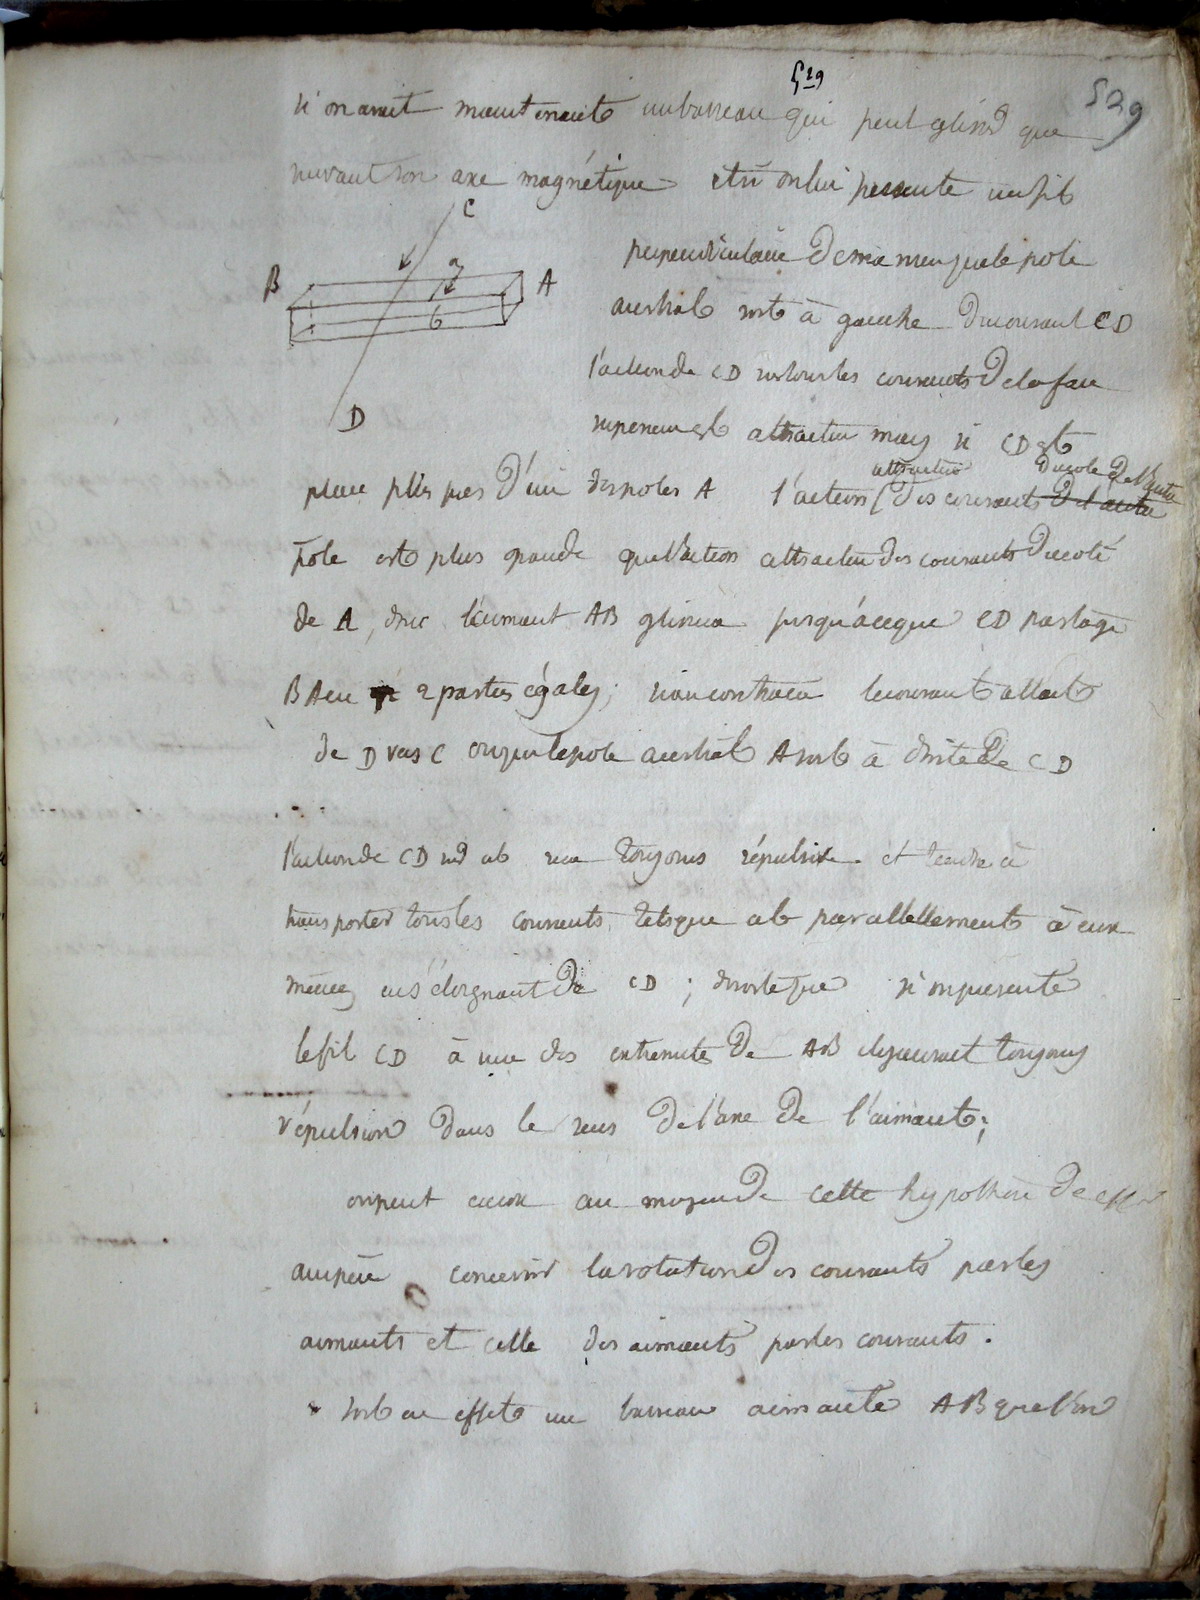 529
529
si on avait maintenant un barreau qui peut glisser que
suivant son axe magnétique et si on lui présente un fil
C
B
A
a
b
D
perpendiculaire de manière que le pole
austral soit à gauche du courant CD
l'action de CD sur tous les courants de la face
superieure est attractive mais si CD est
attractive du coté de l'autre
placé plus près d'un des poles A l'action des courants de l'autre
pole est plus grande que l'action attractive des courants du coté
de A, donc l'aimant AB glissera jusqu'à ce que CD partage
BA en 2 parties égales; si au contraire le courant allait
de D vers C ou que le pole austral A soit à droite de CD
l'action de CD sur ab sera toujours répulsive et tendra à
transporter tous les courants tels que ab parallellement à eux
mêmes en s'éloignant de CD; de sorte que si on présente
le fil CD à une des extremités de AB il y aurait toujours
répulsion dans le sens de l'axe de l'aimant;
on peut encore au moyen de cette hypothèse de
ampère concevoir la rotation des courants par les
aimants et celle des aimants par les courants.
soit en effet un barreau aimanté AB que l'on